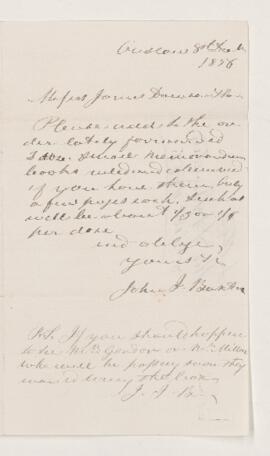 Onslow 8th Dec
1876
Messrs James Dawson &
Please add to the or
der lately forwarded
2 doz. small memorandum
books ruled
if you have them, only
a few pages each. Such as
will be about 1/3 or 1/6
per doz
and oblige,
Yours Tr
John J. Baxter
P.S. If you should happen
to see Mrs Gordon or Mr
who will be passing soon they
would bring the box
J. J. B.